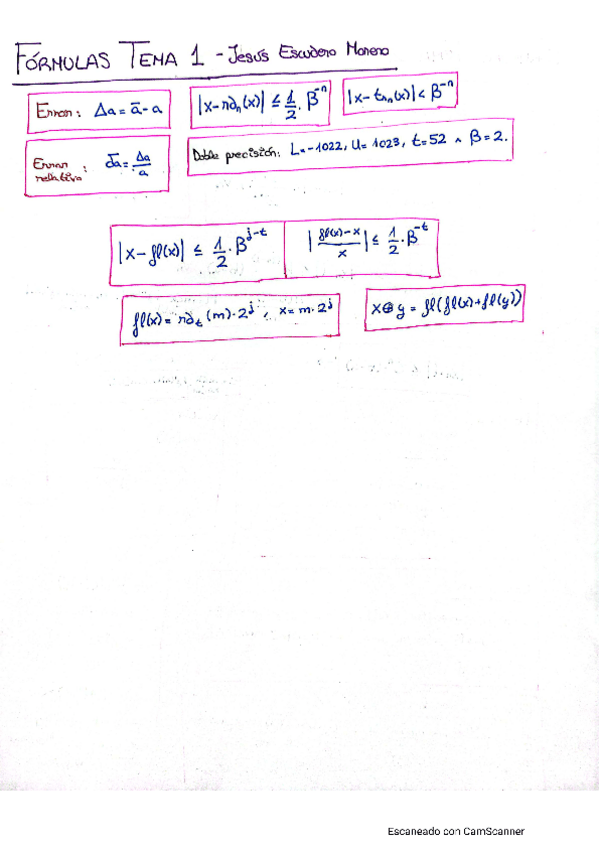 FÓRMULAS TEMA 1 - Jesús Escudero Moreno
Error: Δa = ā - a
|x - rd_n(x)| ≤ 1/2 · β^-n
|x - tr_n(x)| < β^-n
Error relativo: δa = Δa/a
Doble precisión: L = -1022, U = 1023, t = 52 ∧ β = 2.
|x - fl(x)| ≤ 1/2 · β^j-t
|fl(x) - x / x| ≤ 1/2 · β^-t
fl(x) = rd_t(m) · 2^j, x = m · 2^j
x ⊕ y = fl(fl(x) + fl(y))
Escaneado con CamScanner